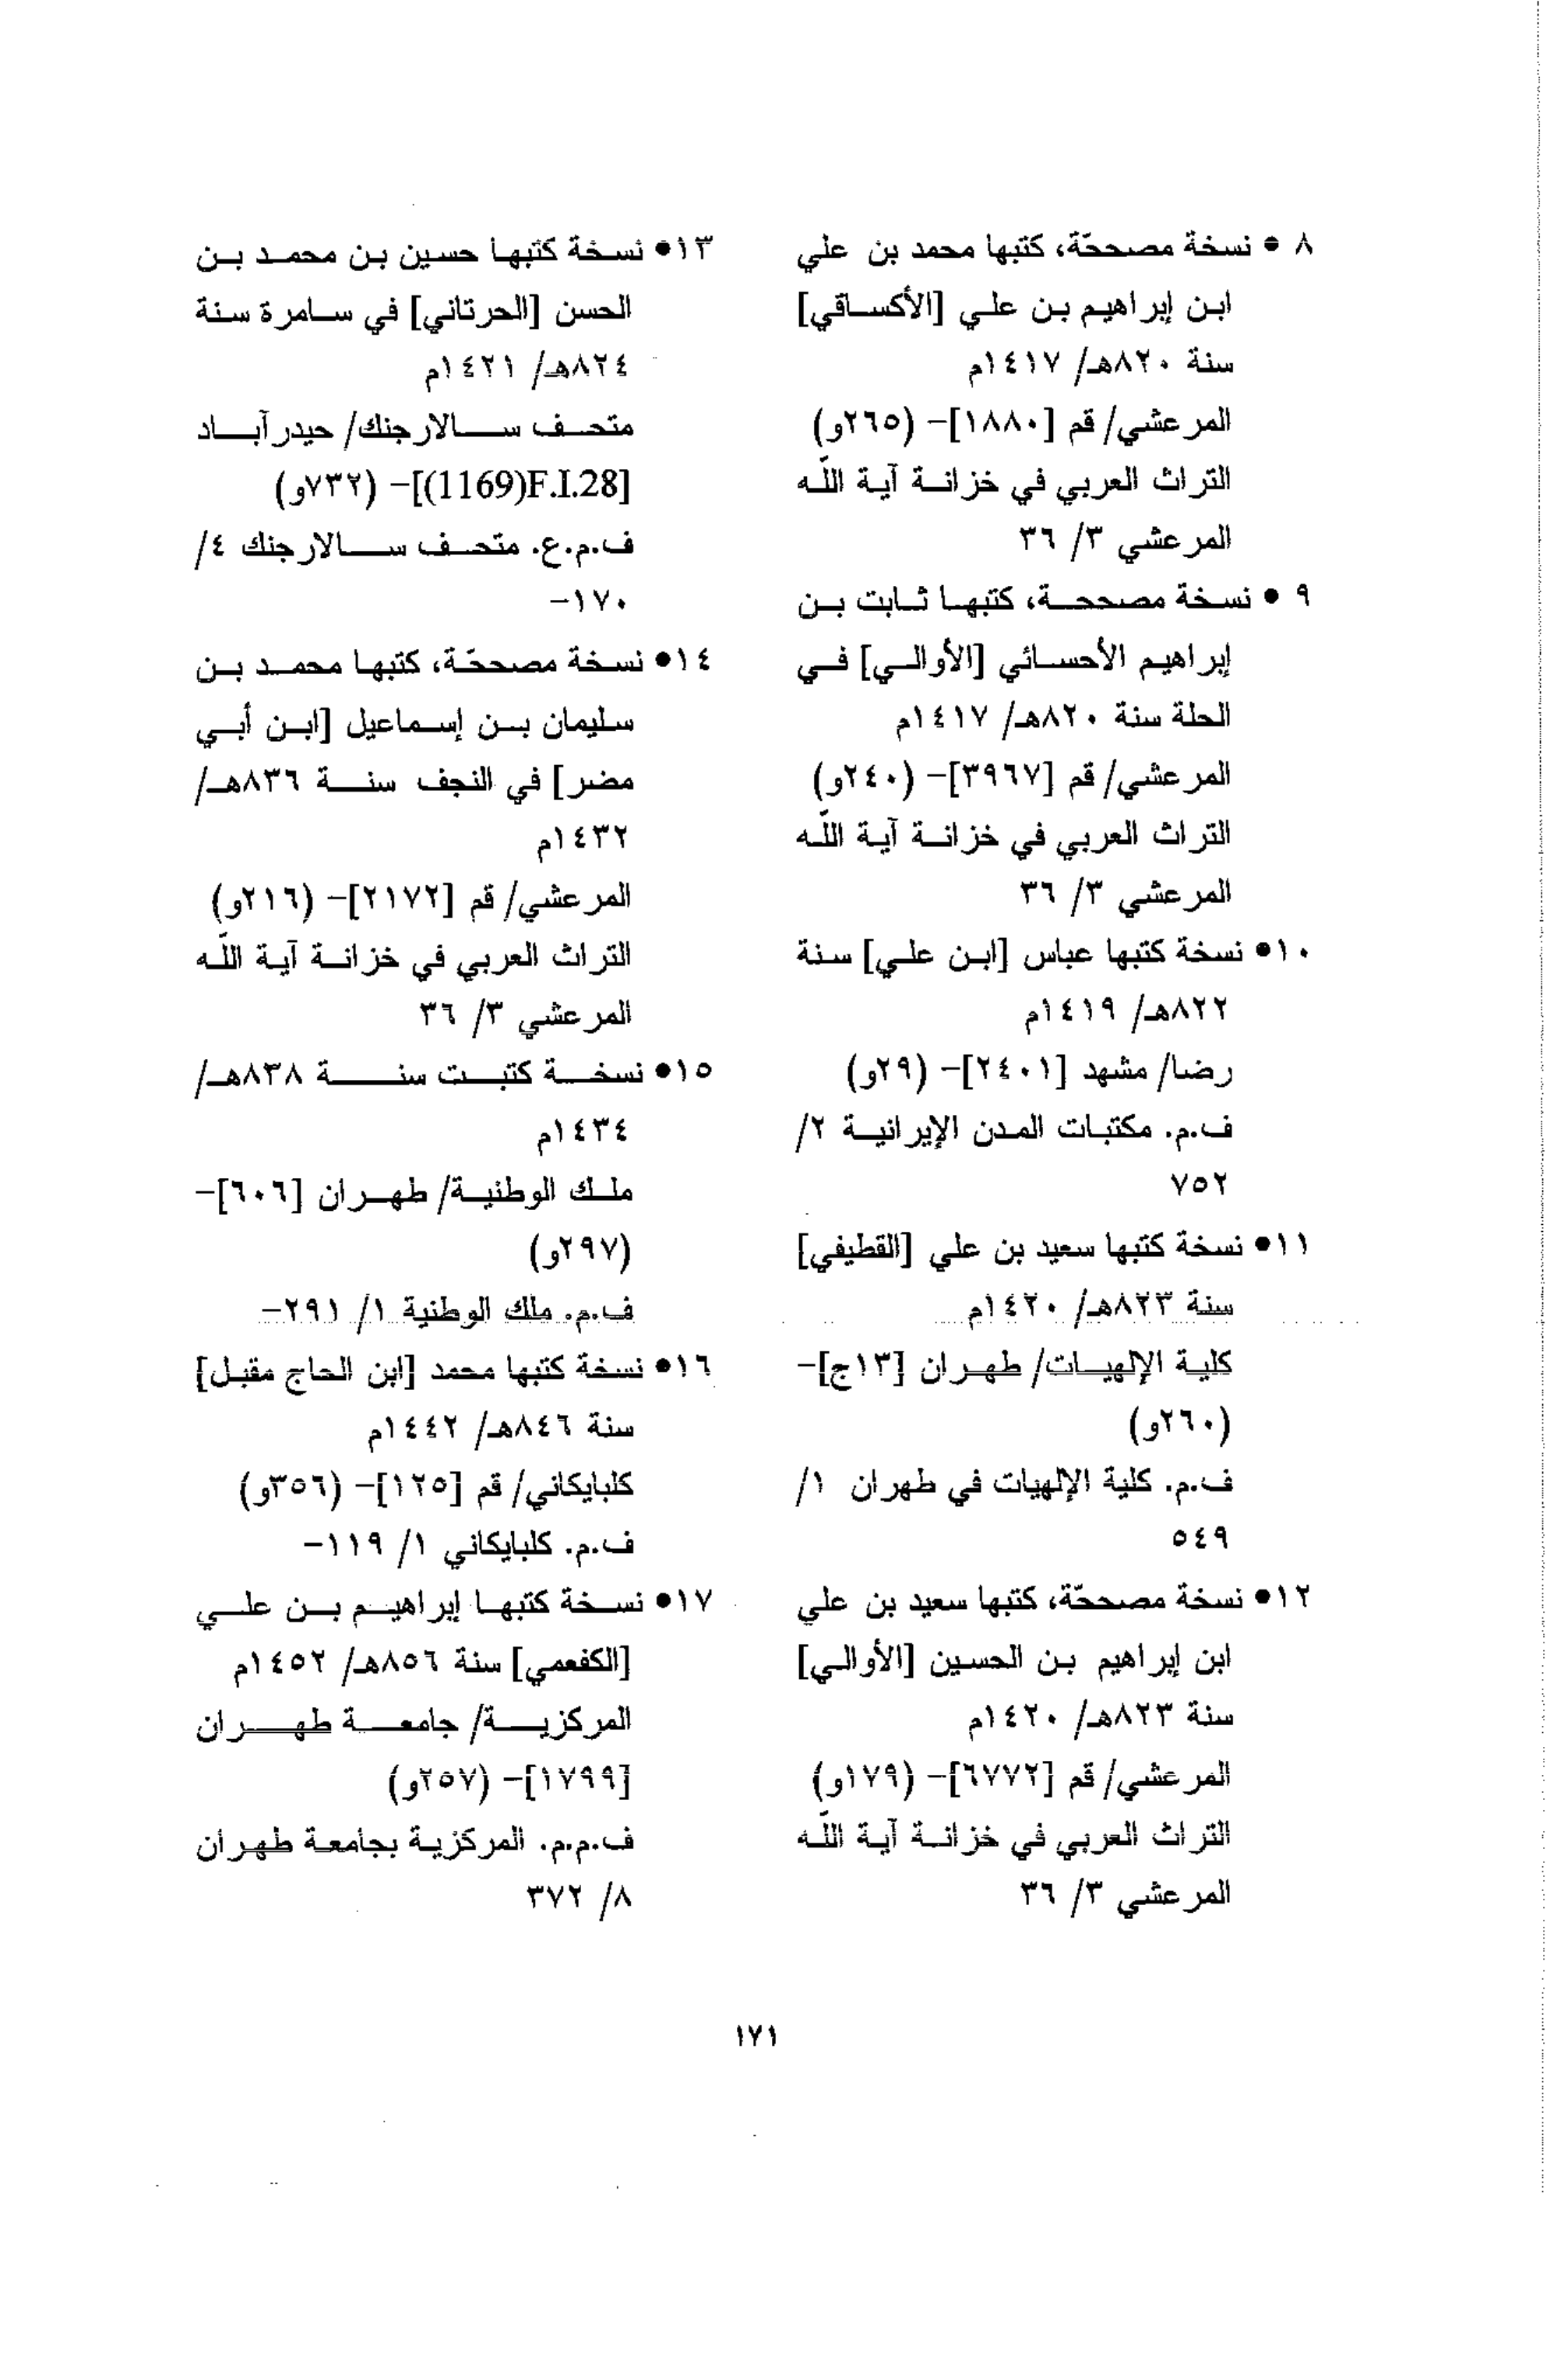 ٨ • نسخة مصححّة، كتبها محمد بن علي
ابن إبراهيم بن علي [الأكساقي]
سنة ٨٢٠هـ/ ١٤١٧م
المرعشي/ قم [١٨٨٠]– (٢٦٥و)
التراث العربي في خزانة آية اللّه
المرعشي ٣/ ٣٦
٩ • نسخة مصححة، كتبها ثابت بن
إبراهيم الأحسائي [الأوالي] في
الحلة سنة ٨٢٠هـ/ ١٤١٧م
المرعشي/ قم [٣٩٦٧]– (٢٤٠و)
التراث العربي في خزانة آية اللّه
المرعشي ٣/ ٣٦
١٠• نسخة كتبها عباس [ابن علي] سنة
٨٢٢هـ/ ١٤١٩م
رضا/ مشهد [٢٤٠١]– (٢٩و)
ف.م. مكتبات المدن الإيرانية ٢/
٧٥٢
١١• نسخة كتبها سعيد بن علي [القطيفي]
سنة ٨٢٣هـ/ ١٤٢٠م
كلية الإلهيات/ طهران [١٣ج]–
(٢٦٠و)
ف.م. كلية الإلهيات في طهران ١/
٥٤٩
١٢• نسخة مصححّة، كتبها سعيد بن علي
ابن إبراهيم بن الحسين [الأوالي]
سنة ٨٢٣هـ/ ١٤٢٠م
المرعشي/ قم [٦٧٧٢]– (١٧٩و)
التراث العربي في خزانة آية اللّه
المرعشي ٣/ ٣٦
١٣• نسخة كتبها حسين بن محمد بن
الحسن [الحرتاني] في سامرة سنة
٨٢٤هـ/ ١٤٢١م
متحف سالارجنك/ حيدرآباد
[(1169)F.I.28]– (٧٣٢و)
ف.م.ع. متحف سالارجنك ٤/
١٧٠–
١٤• نسخة مصححّة، كتبها محمد بن
سليمان بن إسماعيل [ابن أبي
مضر] في النجف سنة ٨٣٦هـ/
١٤٣٢م
المرعشي/ قم [٢١٧٢]– (٢١٦و)
التراث العربي في خزانة آية اللّه
المرعشي ٣/ ٣٦
١٥• نسخة كتبت سنة ٨٣٨هـ/
١٤٣٤م
ملك الوطنية/ طهران [٦٠٦]–
(٢٩٧و)
ف.م. ملك الوطنية ١/ ٢٩١–
١٦• نسخة كتبها محمد [ابن الحاج مقبل]
سنة ٨٤٦هـ/ ١٤٤٢م
كلبايكاني/ قم [١٢٥]– (٣٥٦و)
ف.م. كلبايكاني ١/ ١١٩–
١٧• نسخة كتبها إبراهيم بن علي
[الكفعمي] سنة ٨٥٦هـ/ ١٤٥٢م
المركزية/ جامعة طهران
[١٧٩٩]– (٢٥٧و)
ف.م.م. المركزية بجامعة طهران
٨/ ٣٧٢
١٧١